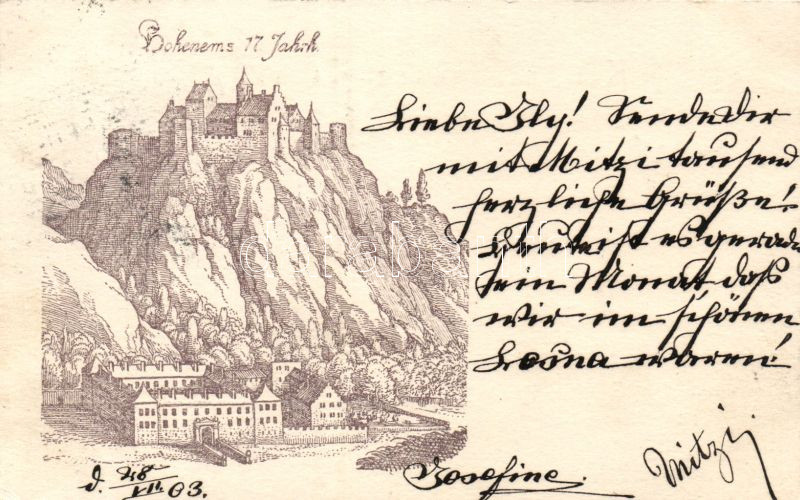 Hohenems 17 Jahrh.
Liebe Ily! Sende Dir
mit Mitzi tausend
herzliche Grüße!
Heute ist es gerade
ein Monat daß
wir im schönen
waren!
Josefine.
Mitzi
d. 28/VII. 03.